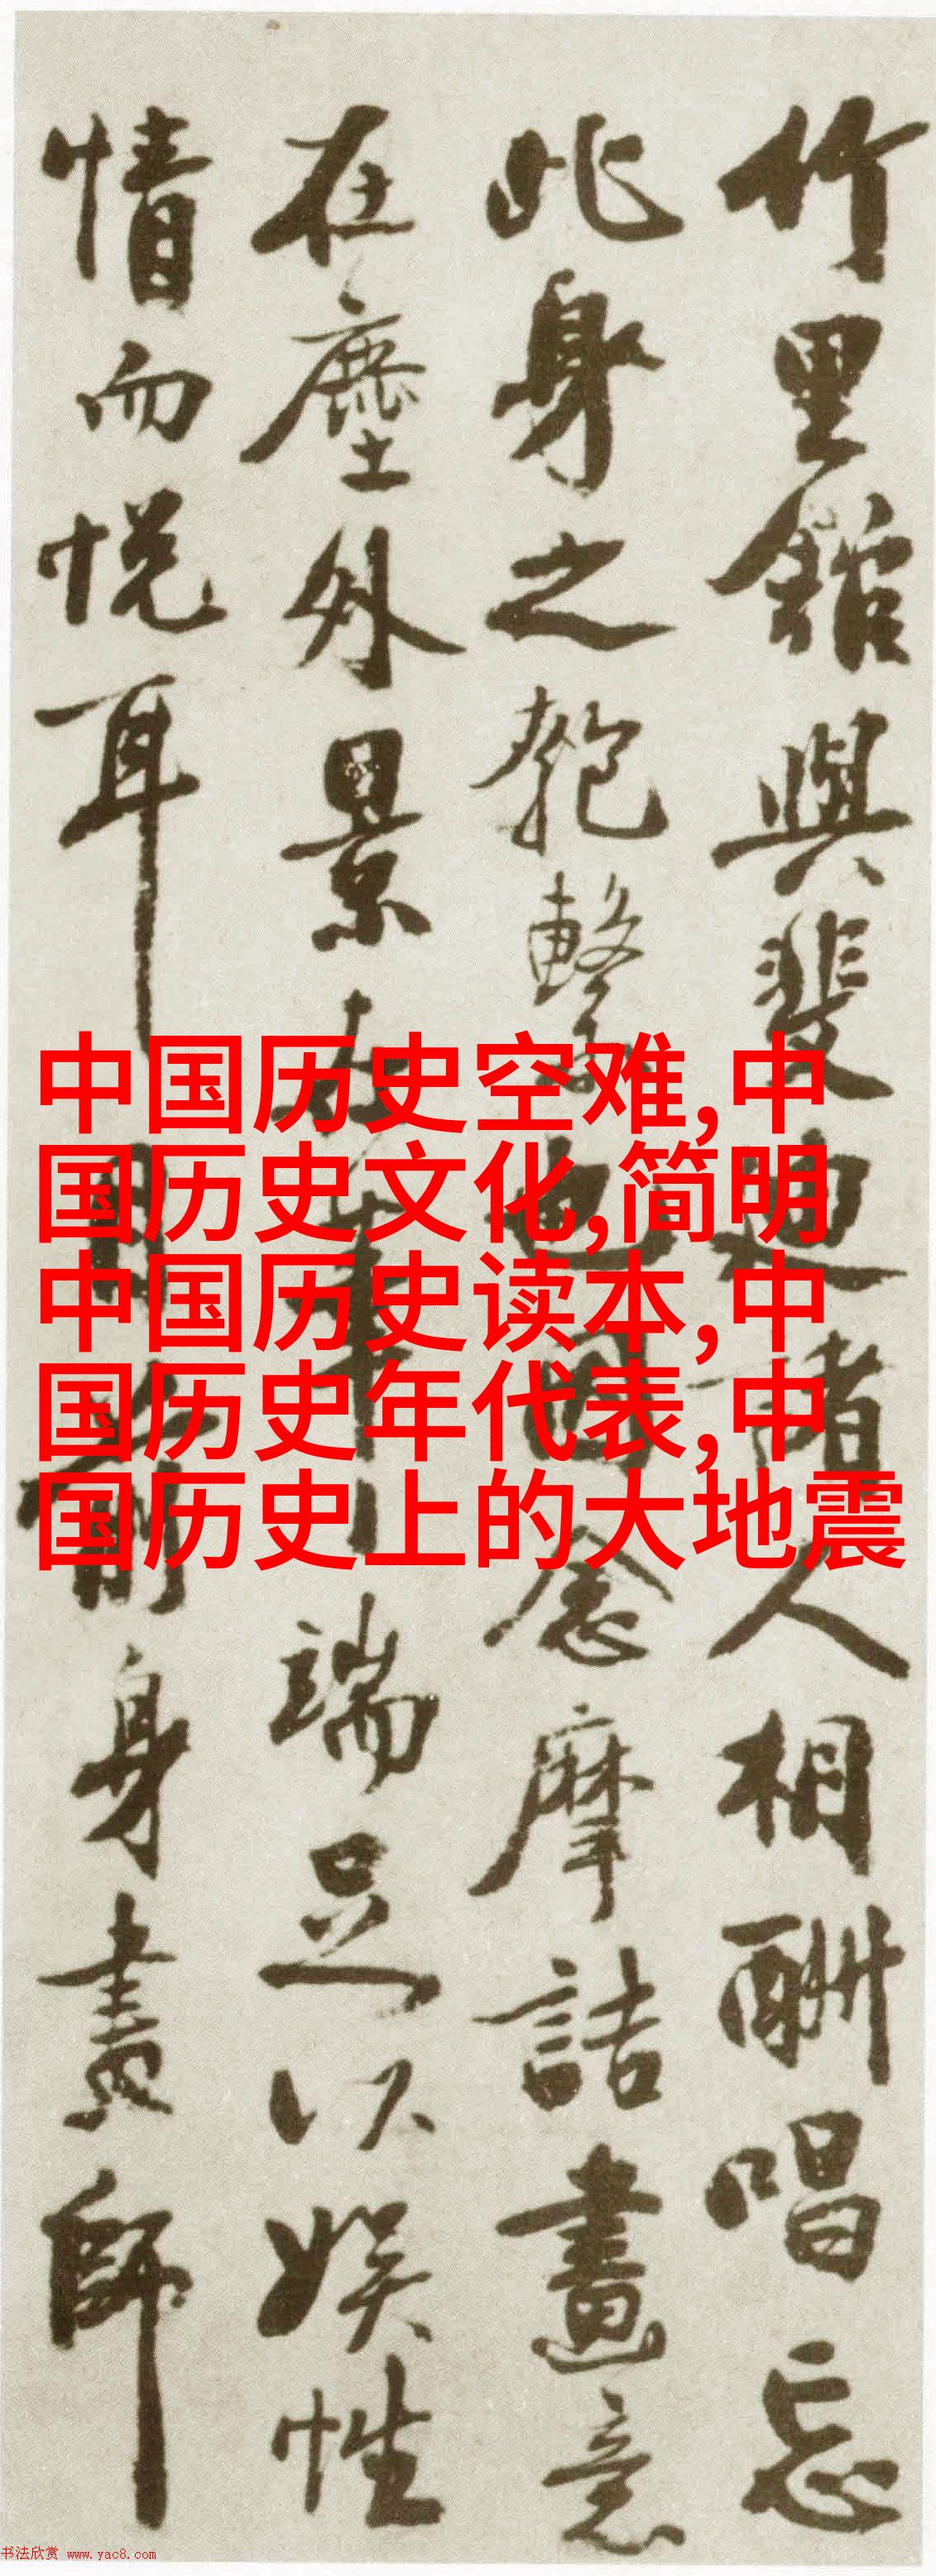 竹里館與裴迪諸人相酬唱忘
此身之匏繫也因念摩詰畫意
在塵外景在筆端足以娛性
情而悅耳前身畫師
中国历史空难,中
国历史文化,简明
中国历史读本,中
国历史年代表,中
国历史上的大地震
书法欣赏 www.yac8.com